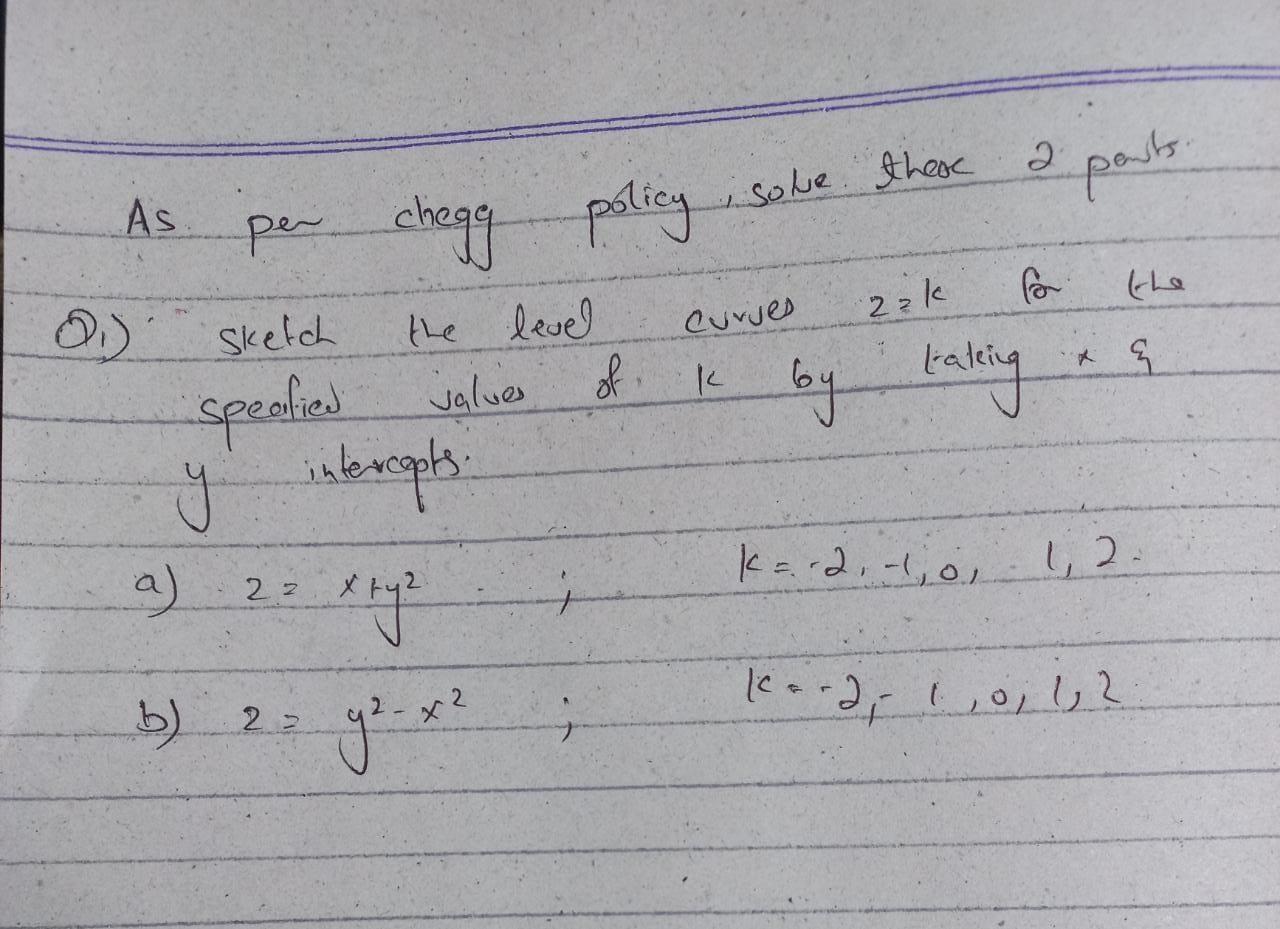 As per chegg policy, solve these 2 parts.
Q.) sketch the level curves z=k for the
specified values of k by taking x &
y intercepts.
a) z = x+y² ; k = -2, -1, 0, 1, 2.
b) z = y²-x² ; k = -2, -1, 0, 1, 2